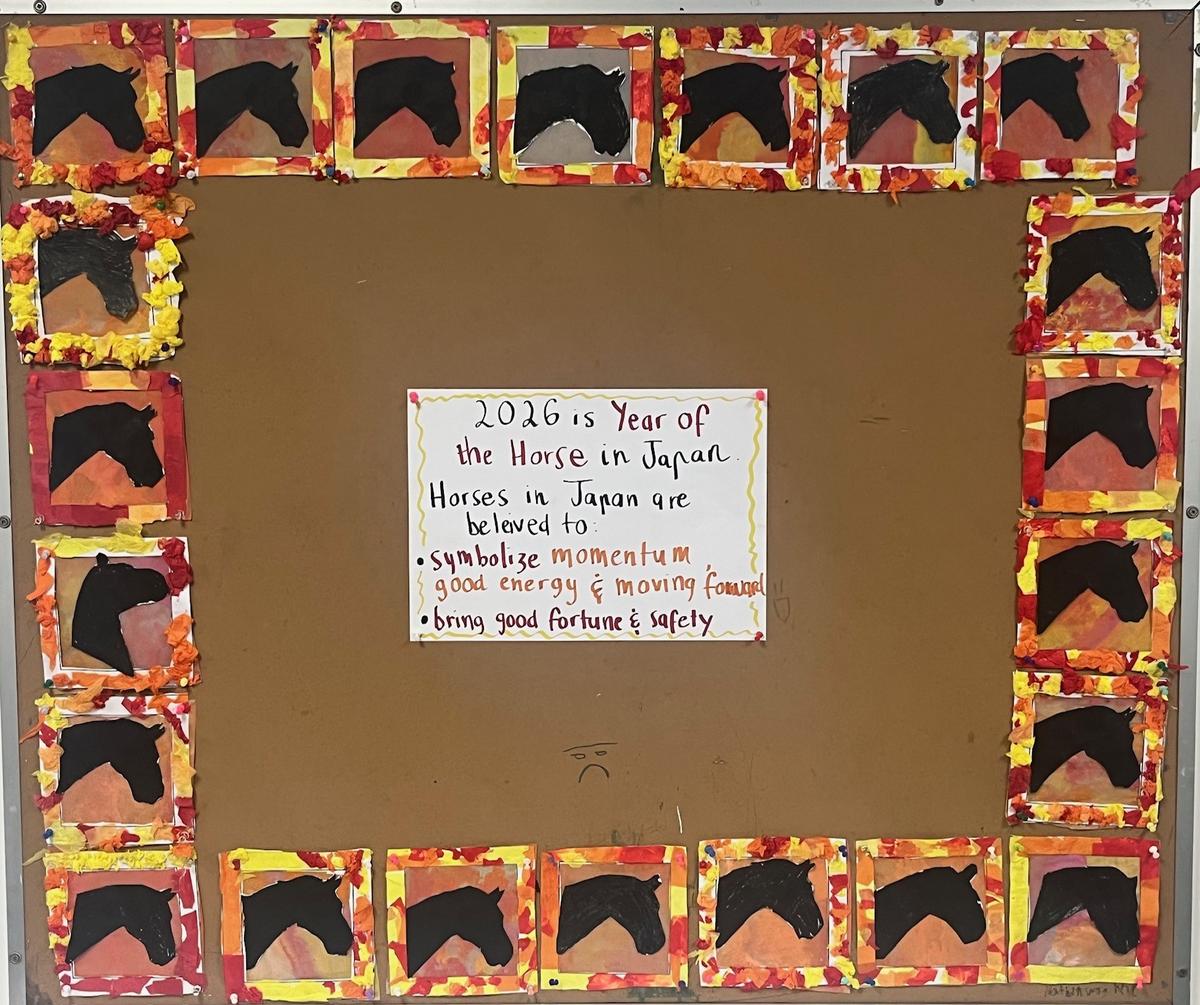 2026 is Year of
the Horse in Japan.
Horses in Japan are
beleived to:
• symbolize momentum,
good energy & moving forward
• bring good fortune & safety